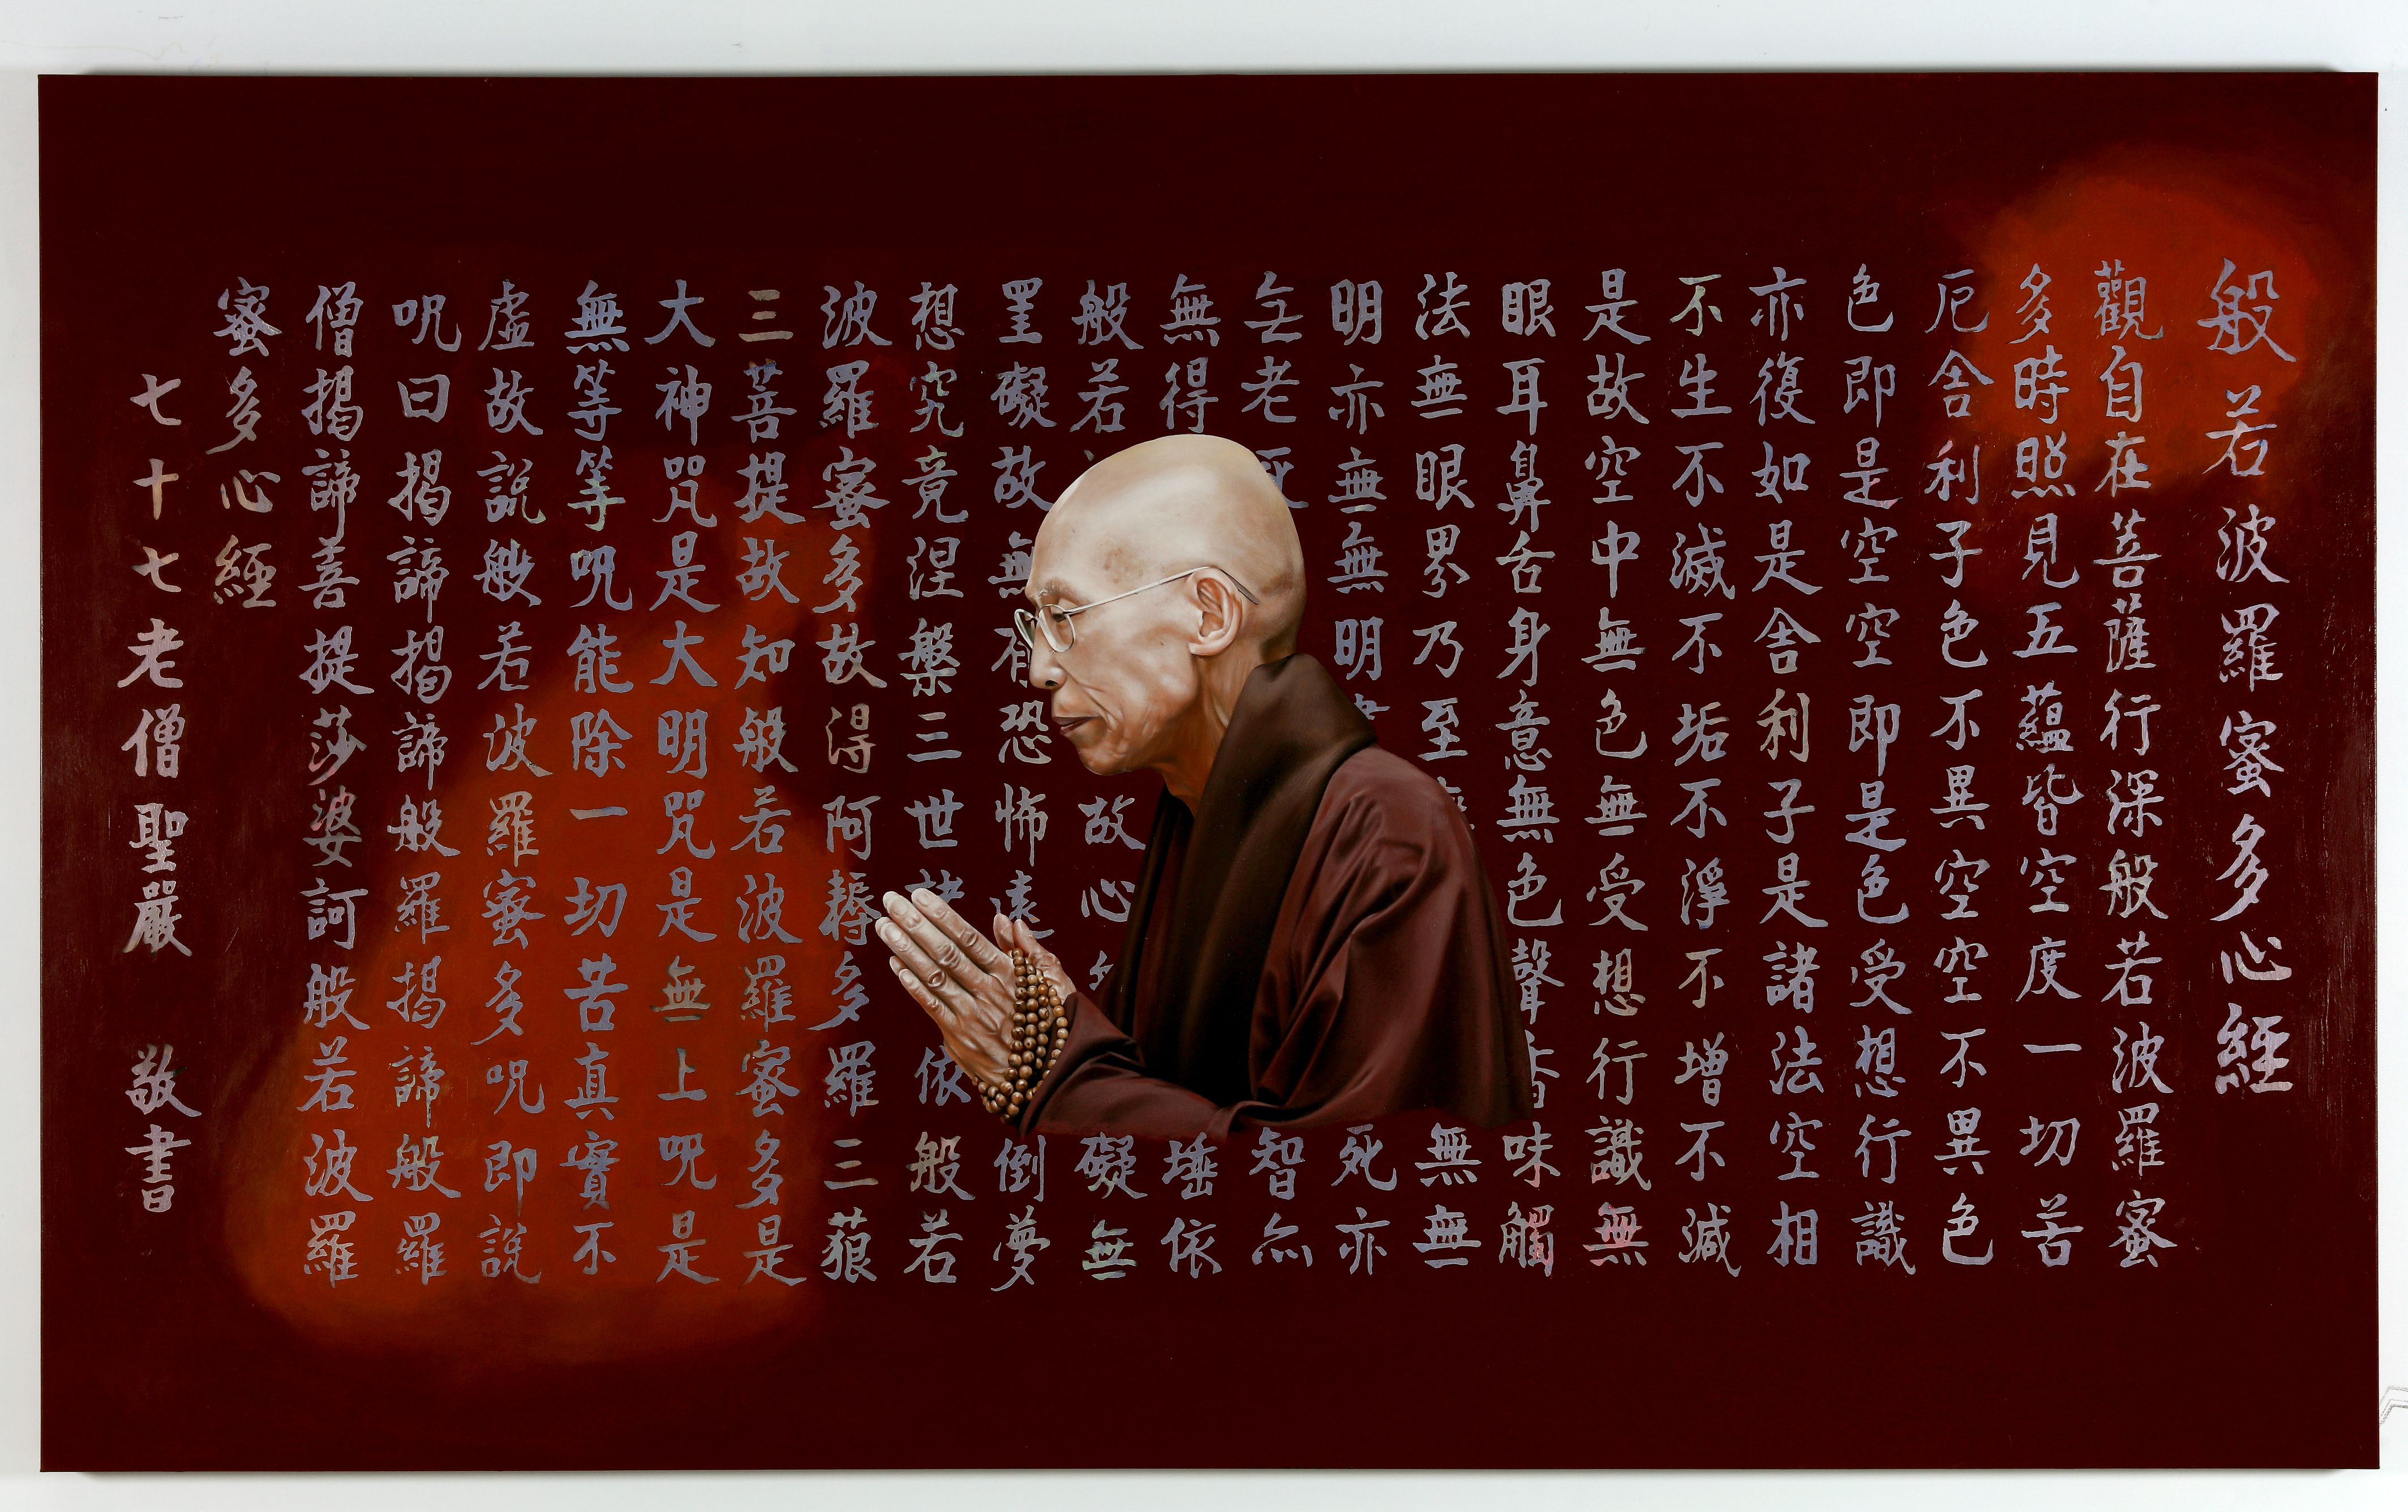 般若波羅蜜多心經
觀自在菩薩行深般若波羅蜜
多時照見五蘊皆空度一切苦
厄舍利子色不異空空不異色
色即是空空即是色受想行識
亦復如是舍利子是諸法空相
不生不滅不垢不淨不增不減
是故空中無色無受想行識無
眼耳鼻舌身意無色聲香味觸
法無眼界乃至無無
明亦無無明死亦
无老死智亦
無得埵依
般若故心礙無
罣礙故無有恐怖遠倒夢
想究竟涅槃三世諸依般若
波羅蜜多故得阿耨多羅三藐
三菩提故知般若波羅蜜多是
大神咒是大明咒是無上呪是
無等等呪能除一切苦真實不
虛故說般若波羅蜜多呪即說
呪曰揭諦揭諦般羅揭諦般羅
僧揭諦菩提莎婆訶般若波羅
蜜多心經
七十七老僧聖嚴 敬書